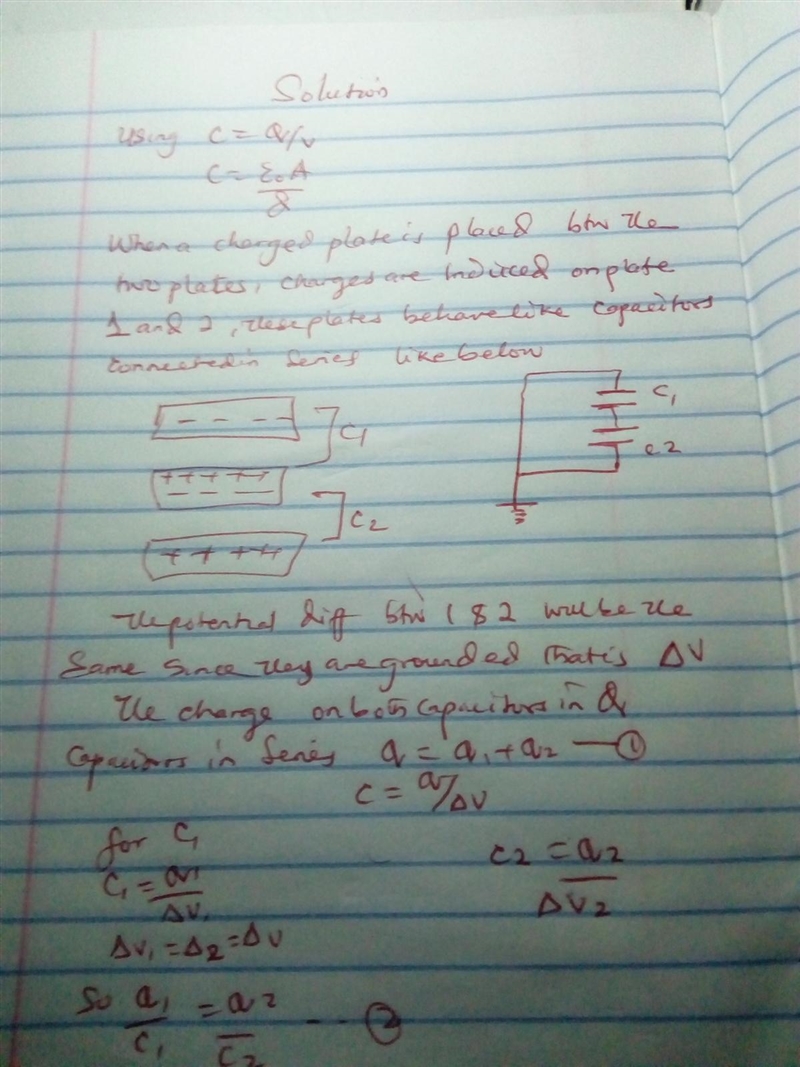 Solution
Using C = Q/V
C = ε₀A/d
When a charged plate is placed btw the
two plates, charges are induced on plate
1 and 2, these plates behave like capacitors
connected in series like below
- - - -
C1
+ + + + +
- - - -
C2
+ + + + +
C1
C2
The potential diff btw 1 & 2 will be the
Same since they are grounded that is ΔV
The charge on both capacitors in Q
Capacitors in series Q = Q1 + Q2 — ①
C = Q/ΔV
for C1
C1 = Q1/ΔV1
C2 = Q2/ΔV2
ΔV1 = Δ2 = ΔV
So Q1/C1 = Q2/C2 --- ②